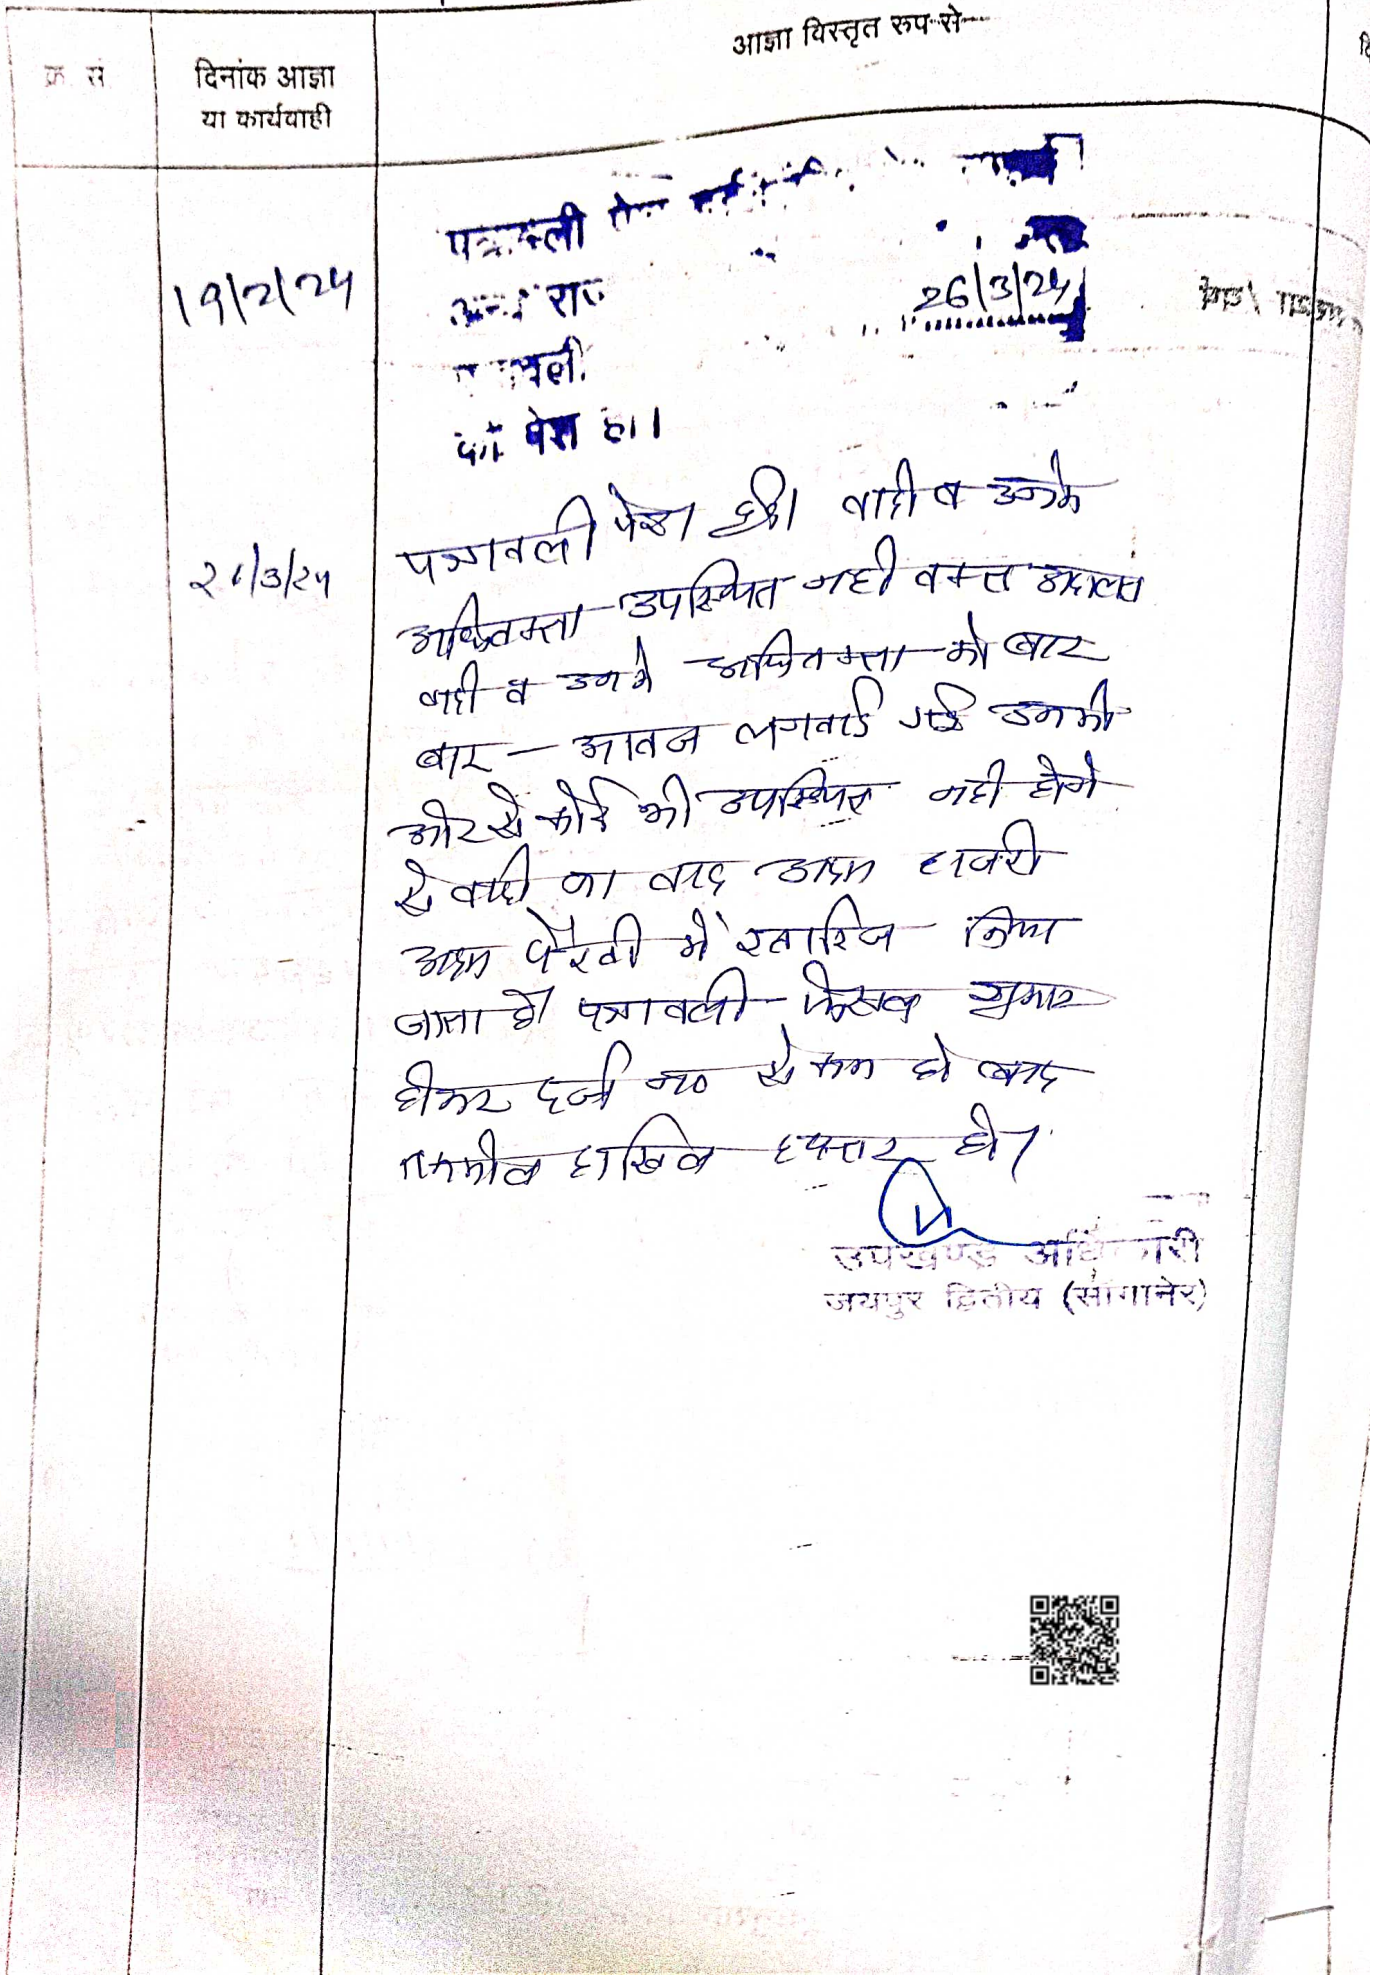 आज्ञा विस्तृत रूप से
क्र. सं.
दिनांक आज्ञा
या कार्यवाही
पत्रावली पेश
19/2/24
26/3/24
को पेश हो।
पत्रावली पेश हुई। वादी व उनके
26/3/24
अधिवक्ता उपस्थित नही वक्त अदालत
वादी व उनके अधिवक्ता को बार
बार - आवाज लगवाई गई उनकी
ओर से कोई भी उपस्थित नही होने
से वादी का वाद अदम हाजरी
अदम पैरवी में खारिज किया
जाता है। पत्रावली फैसल शुमार
होकर दर्ज न० से कम हो बाद
तकमील दाखिल दफ्तर हो।
उपखण्ड अधिकारी
जयपुर द्वितीय (सांगानेर)